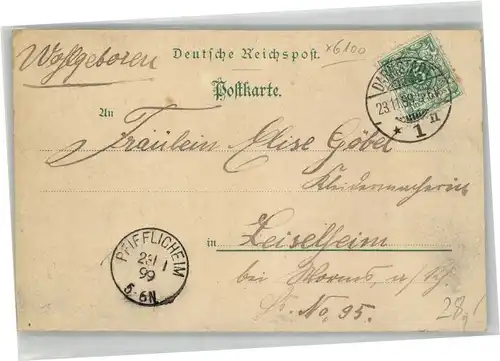 x6100
Wohlgeboren
Deutsche Reichspost.
Postkarte.
An
Fräulein Elise Göbel
Kleidermacherin
in Zeiselheim
bei Worms, a/Rh.
No. 95.
28.
DARMSTADT
23.11.
* 1 n
PFIFFLICHEIM
23/11
99
5-6N.